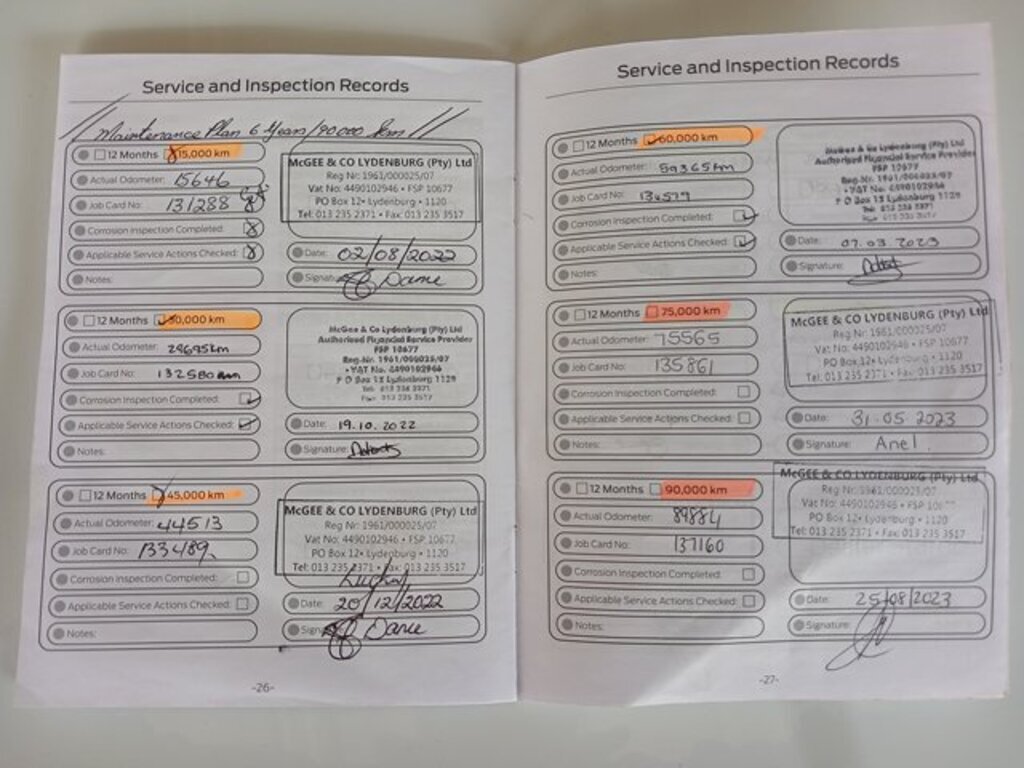 Service and Inspection Records
Maintenance Plan 6 Years/90000 km
12 Months 15,000 km
Actual Odometer: 15646
Job Card No: 131288
Corrosion Inspection Completed:
Applicable Service Actions Checked:
Notes:
McGEE & CO LYDENBURG (Pty) Ltd
Reg Nr: 1961/000025/07
Vat No: 4490102946 • FSP 10677
PO Box 12• Lydenburg • 1120
Tel: 013 235 2371 • Fax: 013 235 3517
Date: 02/08/2022
Signature: Dame
12 Months 30,000 km
Actual Odometer: 29695km
Job Card No: 132580
Corrosion Inspection Completed:
Applicable Service Actions Checked:
Notes:
McGee & Co Lydenburg (Pty) Ltd
Authorised Financial Service Provider
FSP 10677
Reg.Nr. 1961/000025/07
• VAT No. 4490102946
P O Box 12 Lydenburg 1120
Tel: 013 235 2371
Fax: 013 235 3517
Date: 19.10.2022
Signature:
12 Months 45,000 km
Actual Odometer: 44513
Job Card No: 133489
Corrosion Inspection Completed:
Applicable Service Actions Checked:
Notes:
McGEE & CO LYDENBURG (Pty) Ltd
Reg Nr: 1961/000025/07
Vat No: 4490102946 • FSP 10677
PO Box 12• Lydenburg • 1120
Tel: 013 235 2371 • Fax: 013 235 3517
Lucky
Date: 20/12/2022
Signature: Dame
-26-
Service and Inspection Records
12 Months 60,000 km
Actual Odometer: 59365km
Job Card No: 134579
Corrosion Inspection Completed:
Applicable Service Actions Checked:
Notes:
McGee & Co Lydenburg (Pty) Ltd
Authorised Financial Service Provider
FSP 10677
Reg.Nr. 1961/000025/07
• VAT No. 4490102946
P O Box 12 Lydenburg 1120
Tel: 013 235 2371
Fax: 013 235 3517
Date: 07.03.2023
Signature:
12 Months 75,000 km
Actual Odometer: 75565
Job Card No: 135861
Corrosion Inspection Completed:
Applicable Service Actions Checked:
Notes:
McGEE & CO LYDENBURG (Pty) Ltd
Reg Nr: 1961/000025/07
Vat No: 4490102946 • FSP 10677
PO Box 12• Lydenburg • 1120
Tel: 013 235 2371 • Fax: 013 235 3517
Date: 31.05.2023
Signature: Anel.
12 Months 90,000 km
Actual Odometer: 89884
Job Card No: 137160
Corrosion Inspection Completed:
Applicable Service Actions Checked:
Notes:
McGEE & CO LYDENBURG (Pty) Ltd
Reg Nr: 1961/000025/07
Vat No: 4490102946 • FSP 106
PO Box 12• Lydenburg • 1120
Tel: 013 235 2371 • Fax: 013 235 3517
Date: 25/08/2023
Signature:
-27-